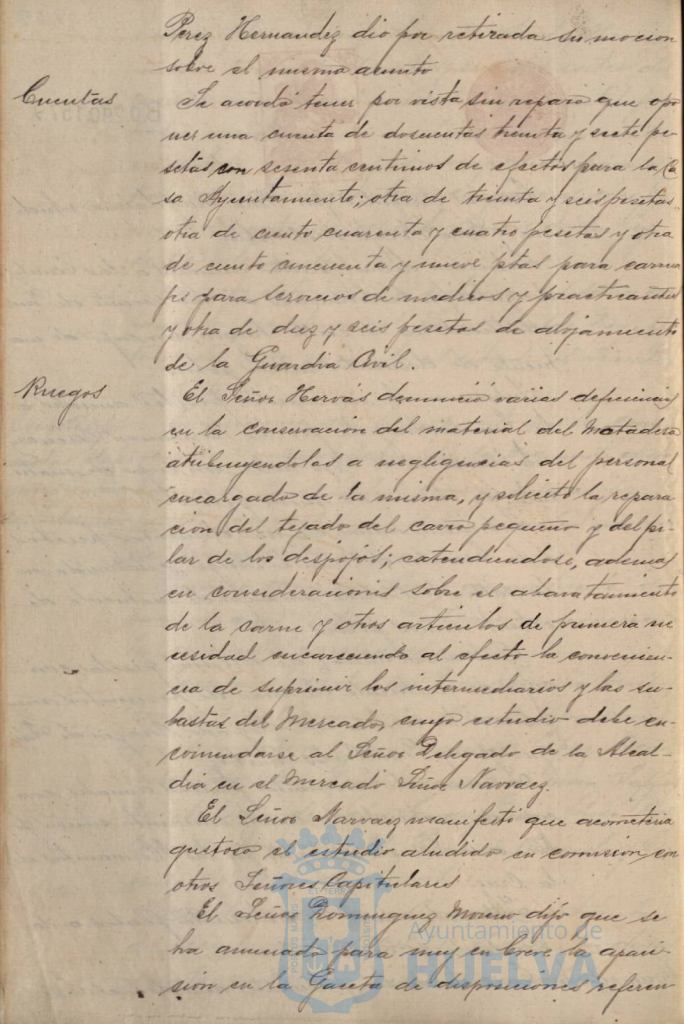 Perez Hernandez dio por retirada su mocion
sobre el mismo asunto
Cuentas
Se acordó tener por vista sin reparo que opo-
ner una cuenta de doscuentas treinta y siete pe-
setas con sesenta centimos de efectos para la Ca
sa Ayuntamiento; otra de treinta y seis pesetas
otra de ciento cuarenta y cuatro pesetas y otra
de ciento cincuenta y nueve ptas para carrua
jes para servicios de medicos y practicantes
y otra de diez y seis pesetas de alojamiento
de la Guardia Civil.
Ruegos
El Señor Hervás denunció varias deficiencias
en la conservación del material del Matadero
atribuyendolas a negligencias del personal
encargado de la misma, y solicitó la repara
cion del tejado del carro pequeño y del pi-
lar de los despojos; extendiendose, ademas
en consideraciones sobre el abaratamiento
de la carne y otros articulos de primera ne
cesidad encareciendo al efecto la convenien-
cia de suprimir los intermediarios y las su-
bastas del Mercado, cuyo estudio debe en-
comendarse al Señor Delegado de la Alcal-
dia en el Mercado Señor Narvaez.
El Señor Narvaez manifestó que acometeria
gustoso el estudio aludido en comision con
otros Señores Capitulares
El Señor Dominguez Moreno dijo que se
ha anunciado para muy en breve la apari-
sion en la Gaceta de disposiciones referen-
Ayuntamiento de
HUELVA